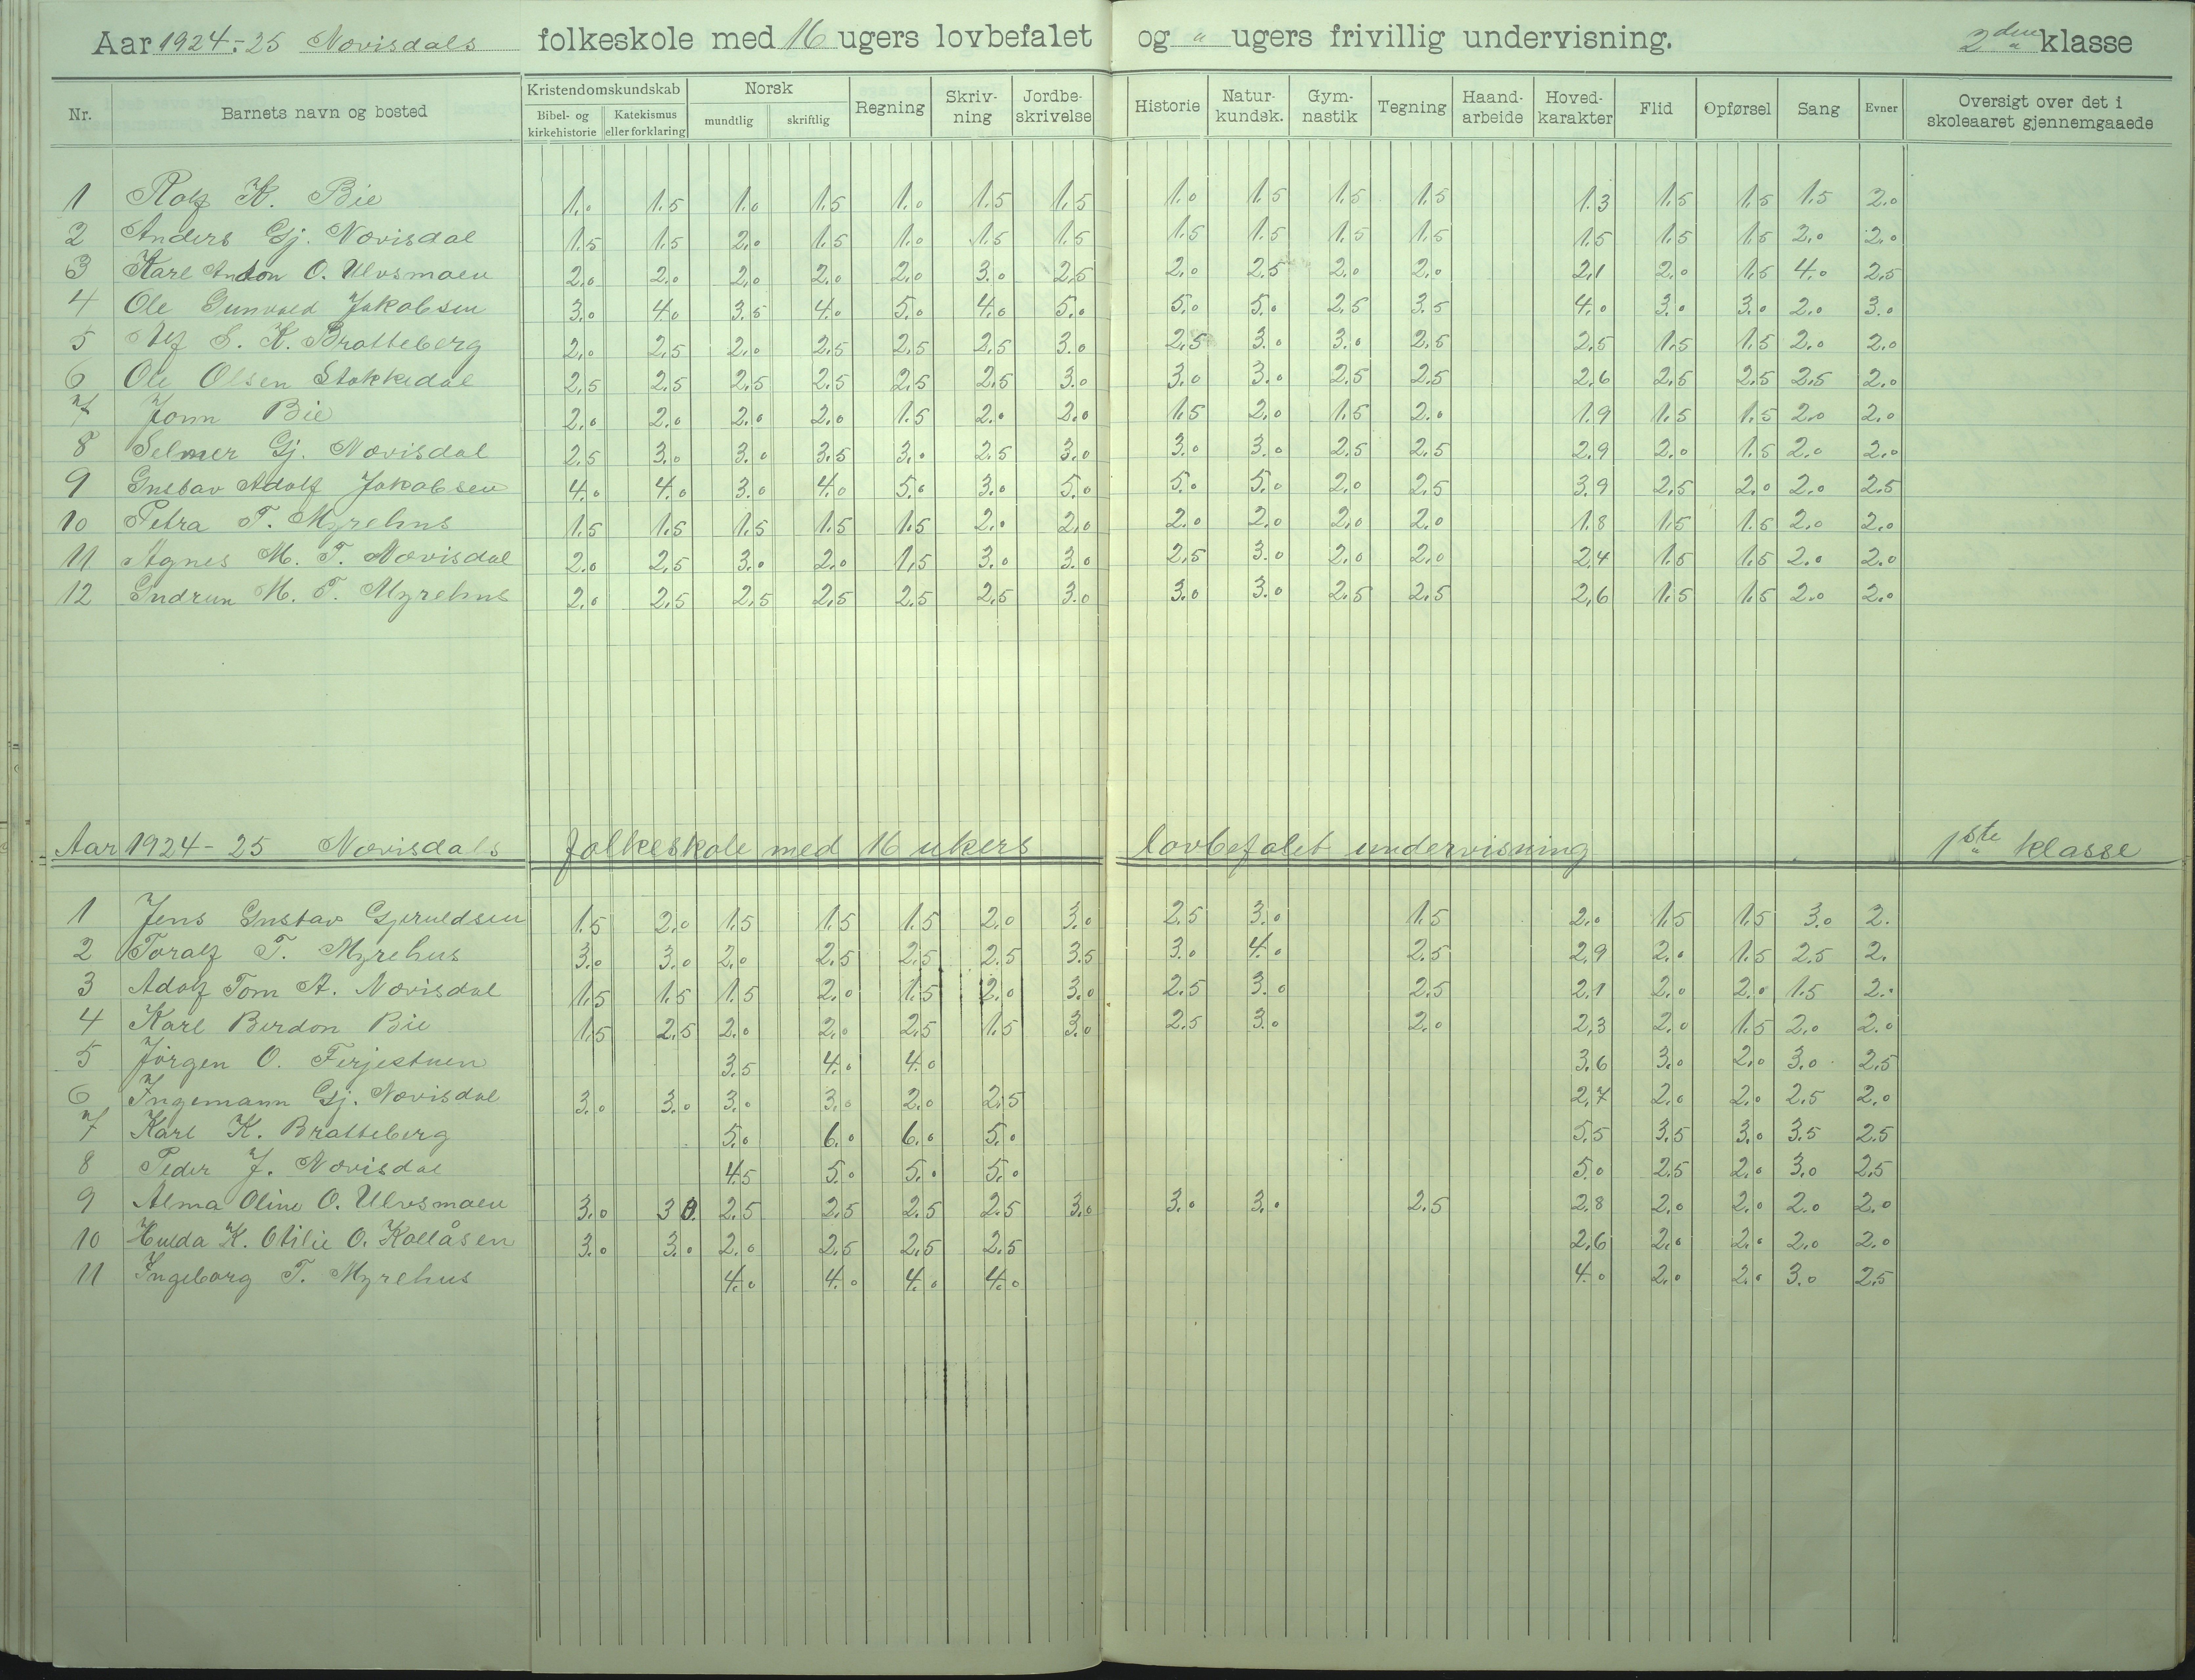 Aar 1924.-25 Novisdals folkeskole med 16 ugers lovbefalet og " ugers frivillig undervisning. 2den klasse
Nr. Barnets navn og bosted Kristendomskundskab Bibel- og kirkehistorie Katekismus eller forklaring Norsk mundtlig skriftlig Regning Skriv-ning Jordbe-skrivelse Historie Natur-kundsk. Gym-nastik Tegning Haand-arbeide Hoved-karakter Flid Opførsel Sang Evner Oversigt over det i skoleaaret gjennemgaaede
1 Rolf K. Bie 1.0 1.5 1.0 1.5 1.0 1.5 1.5 1.0 1.5 1.5 1.5 1.3 1.5 1.5 1.5 2.0
2 Anders Gj. Novisdal 1.5 1.5 2.0 1.5 1.0 1.5 1.5 1.5 1.5 1.5 1.5 1.5 1.5 1.5 2.0 2.0
3 Karl Anton O. Ulvsmoen 2.0 2.0 2.0 2.0 2.0 3.0 2.5 2.0 2.5 2.0 2.0 2.1 2.0 1.5 4.0 2.5
4 Ole Gunvald Jakobsen 3.0 4.0 3.5 4.0 5.0 4.0 5.0 5.0 5.0 2.5 3.5 4.0 3.0 3.0 2.0 3.0
5 Alf S. K. Bratteberg 2.0 2.5 2.0 2.5 2.5 2.5 3.0 2.5 3.0 3.0 2.5 2.5 1.5 1.5 2.0 2.0
6 Ole Olsen Stokkedal 2.5 2.5 2.5 2.5 2.5 2.5 3.0 3.0 3.0 2.5 2.5 2.6 2.5 2.5 2.5 2.0
7 Jonn Bie 2.0 2.0 2.0 2.0 1.5 2.0 2.0 1.5 2.0 1.5 2.0 1.9 1.5 1.5 2.0 2.0
8 Selmer Gj. Novisdal 2.5 3.0 3.0 3.5 3.0 2.5 3.0 3.0 3.0 2.5 2.5 2.9 2.0 1.5 2.0 2.0
9 Gustav Adolf Jakobsen 4.0 4.0 3.0 4.0 5.0 3.0 5.0 5.0 5.0 2.0 2.5 3.9 2.5 2.0 2.0 2.5
10 Petra T. Myrehus 1.5 1.5 1.5 1.5 1.5 2.0 2.0 2.0 2.0 2.0 2.0 1.8 1.5 1.5 2.0 2.0
11 Agnes M. T. Novisdal 2.0 2.5 3.0 2.0 1.5 3.0 3.0 2.5 3.0 2.0 2.0 2.4 1.5 1.5 2.0 2.0
12 Gudrun M. T. Myrehus 2.0 2.5 2.5 2.5 2.5 2.5 3.0 3.0 3.0 2.5 2.5 2.6 1.5 1.5 2.0 2.0
Aar 1924-25 Novisdals folkeskole med 16 ukers lovbefalet undervisning 1ste klasse
1 Jens Gustav Gjeruldsen 1.5 2.0 1.5 1.5 1.5 2.0 3.0 2.5 3.0 1.5 2.0 1.5 1.5 3.0 2.
2 Toralf T. Myrehus 3.0 3.0 2.0 2.5 2.5 2.5 3.5 3.0 4.0 2.5 2.9 2.0 1.5 2.5 2.
3 Adolf Tom A. Novisdal 1.5 1.5 1.5 2.0 1.5 2.0 3.0 2.5 3.0 2.5 2.1 2.0 2.0 1.5 2.0
4 Karl Berdon Bie 1.5 2.5 2.0 2.0 2.5 1.5 3.0 2.5 3.0 2.0 2.3 2.0 1.5 2.0 2.0
5 Jørgen O. Ferjestuen 3.5 4.0 4.0 3.6 3.0 2.0 3.0 2.5
6 Ingemann Gj. Novisdal 3.0 3.0 3.0 3.0 2.0 2.5 2.7 2.0 2.0 2.5 2.0
7 Karl K. Bratteberg 5.0 6.0 6.0 5.0 5.5 3.5 3.0 3.5 2.5
8 Peder J. Novisdal 4.5 5.0 5.0 5.0 5.0 2.5 2.0 3.0 2.5
9 Alma Oline O. Ulvsmoen 3.0 3 0. 2.5 2.5 2.5 2.5 3.0 3.0 3.0 2.5 2.8 2.0 2.0 2.0 2.0
10 Hulda K. Otilie O. Kollåsen 3.0 3.0 2.0 2.5 2.5 2.5 2.6 2.0 2.0 2.0 2.0
11 Ingeborg T. Myrehus 4.0 4.0 4.0 4.0 4.0 2.0 2.0 3.0 2.5